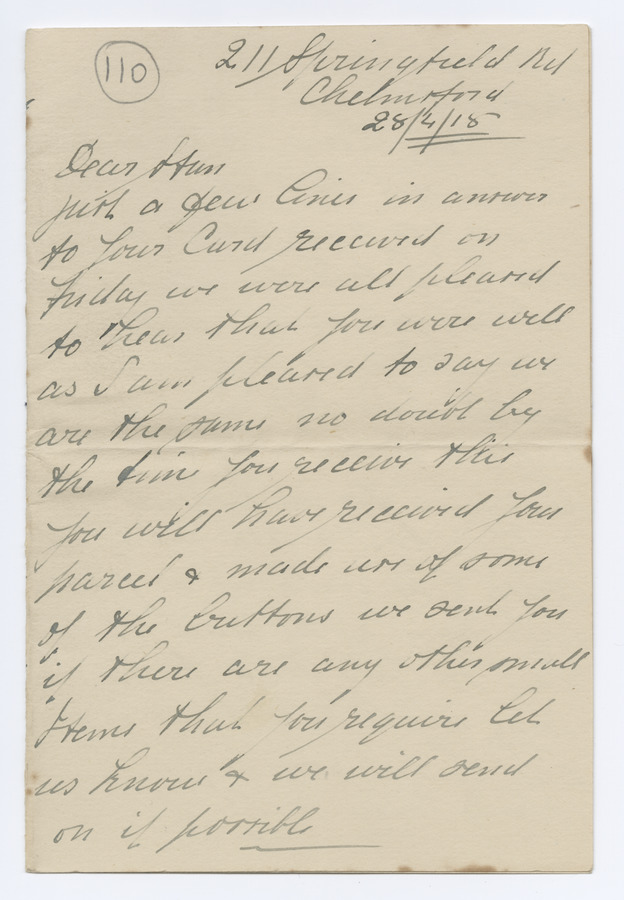 110
211 Springfield Rd
Chelmsford
28/4/18
Dear
just a few lines in answer
to your Card received on
Friday we were all pleased
to hear that you were well
as I am pleased to say we
are the same no doubt by
the time you receive this
you will have received your
parcel & made use of some
of the buttons we sent you
if there are any other small
Items that you require let
us know & we will send
on if possible